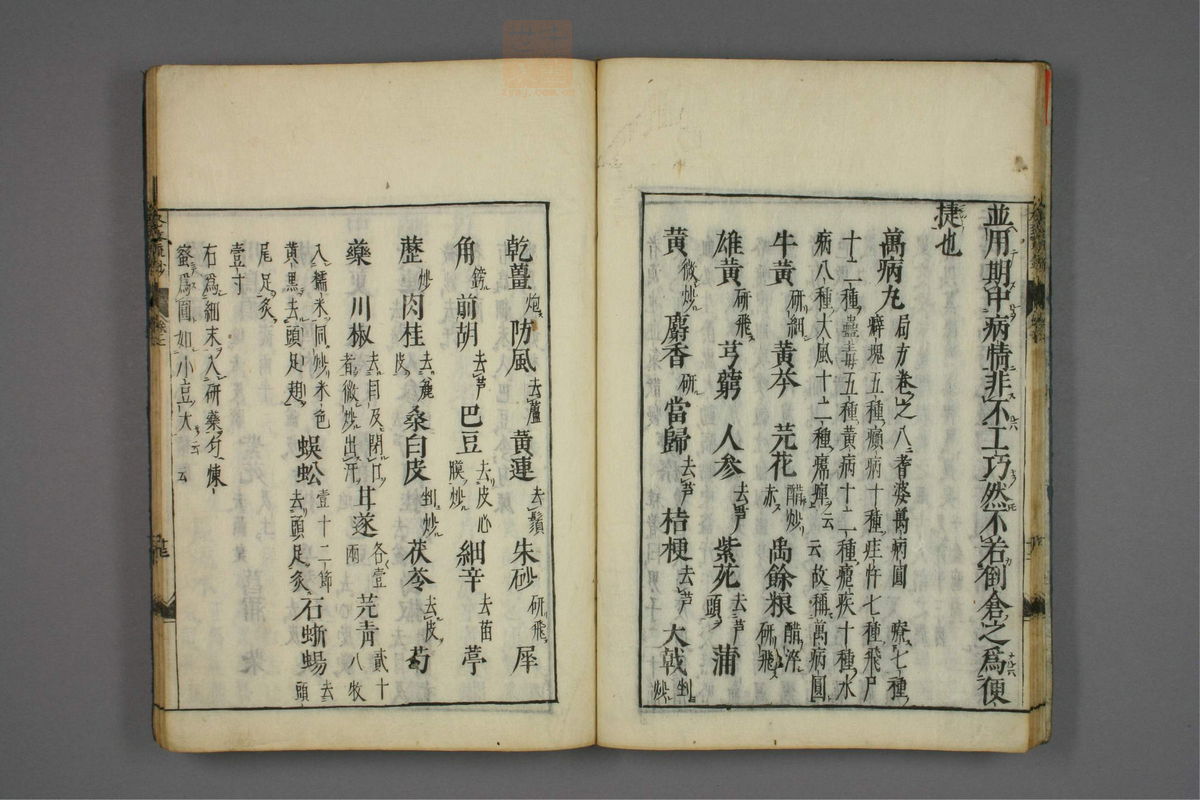 並用期中病情非不工巧然不若倒倉之爲便
捷也
萬病丸 局方卷之八耆婆萬病圓 療七種
癖塊五種癲病十種疰忤七種飛尸
十二種蠱毒五種黃病十二種瘧疾十種水
病八種大風十二種痛痺云云故稱萬病圓
牛黃 研細 黃芩 芫花 醋炒赤 禹餘粮 醋淬研飛
雄黃 研飛 芎藭 人參 去芦 紫菀 去芦頭 蒲
黃 微炒 麝香 研 當歸 去芦 桔梗 去芦 大戟 剉炒
乾薑 炮 防風 去蘆 黃連 去鬚 朱砂 研飛 犀
角 鎊 前胡 去芦 巴豆 去皮心膜炒 細辛 去苗 葶
藶 炒 肉桂 去麁皮 桑白皮 剉炒 茯苓 去皮 芍
藥 川椒 去目及閉口者微炒出汗 甘遂 各壹兩 芫青 貳十八枚
入糯米同炒米色
黃黑去頭足翅 蜈蚣 壹十二節去頭足炙 石蜥蜴 去頭
尾足炙
壹寸
右爲細末入研藥勻煉
蜜爲圓如小豆大 云云